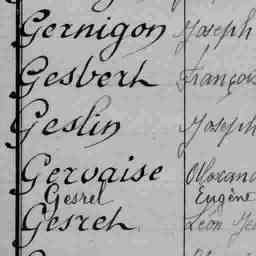 Gernigon Joseph
Gesbert François
Geslin Joseph
Gervaise
Gesrel Eugène
Gesret Léon